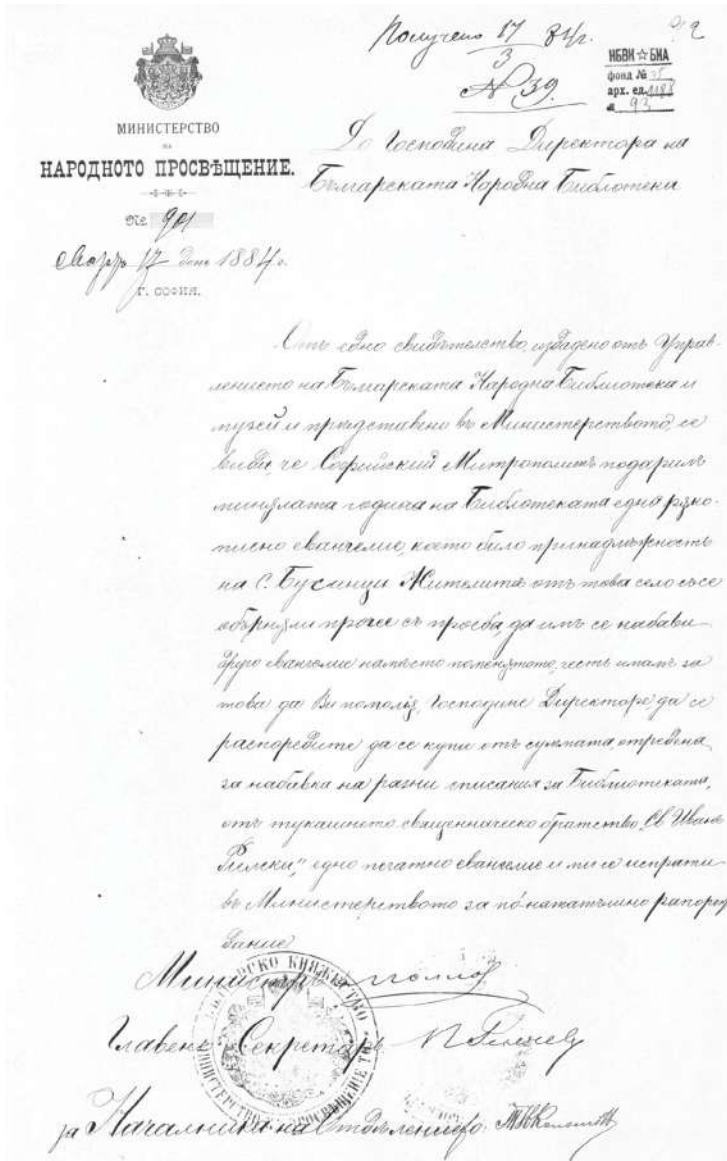 Получено 17/3 84г.
№ 39.
НБКМ☆БИА
фонд №
арх. ед.
л 93
МИНИСТЕРСТВО
НА
НАРОДНОТО ПРОСВѢЩЕНИЕ.
№ 901
Мартъ 17 день 1884 г.
Г. СОФИЯ.
До Господина Директора на
Българската Народна Библиотека
Отъ едно свидѣтелство, издадено отъ Управ-
лението на Българската Народна Библиотека и
музей и прѣдставено въ Министерството, се
види, че Софийский Митрополитъ подарилъ
минѫлата година на Библиотеката едно рѫко-
писно евангелие, което било принадлѣжность
на с. Бусинци Жителитѣ отъ това село сѫ се
обърнѫли проче съ просба, да имъ се набави
друго евангелие намѣсто поменѫтото, честь имамъ за
това да Ви помолѭ, Господине Директоре, да се
распоредите да се купи отъ суммата, отредена
за набавка на разни списания за Библиотеката,
отъ тукашното священническо братство „Св Иванъ
Рилски,“ едно печатно евангелие и ми се испрати
въ Министерството за по́-нататъшно распореж
дание
Министръ
Главенъ Секретарь
за Началника на Отдѣлението: